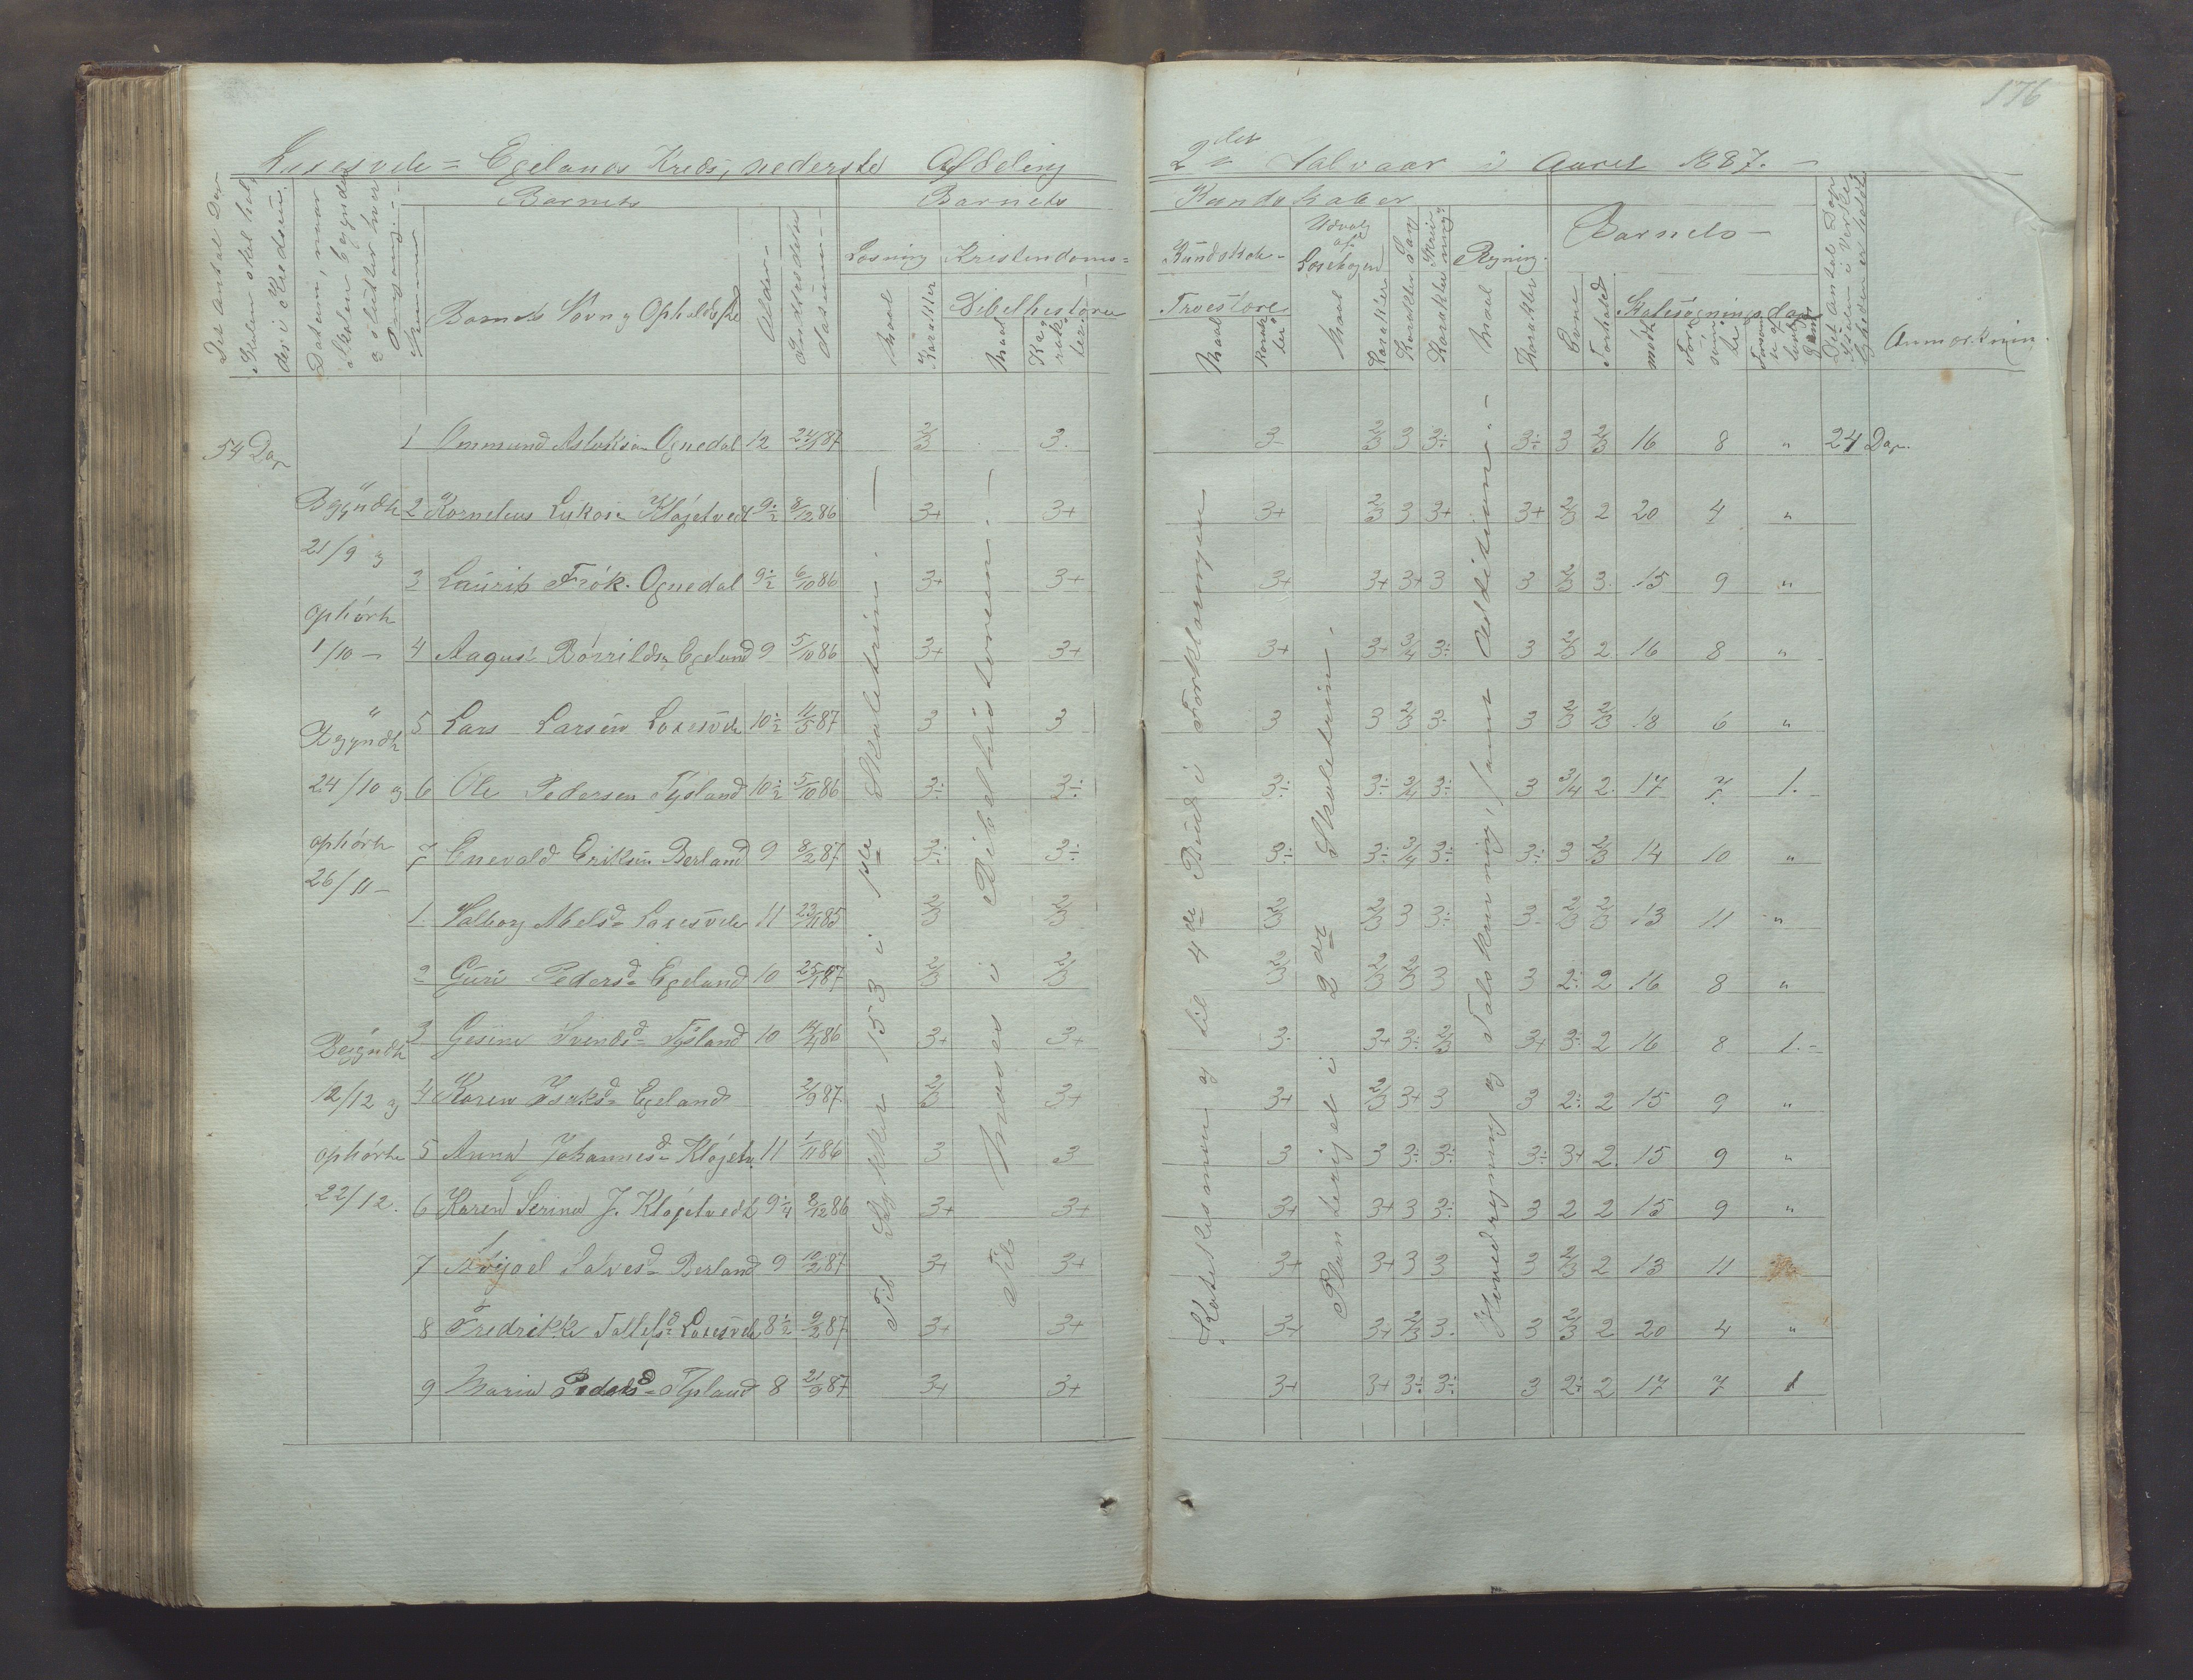 176
Egelands Kreds, nederste Afdeling
2den Halvaar i Aaret 1887.
Barnets
Barnets
Kundskaber
Barnets
Det Antal Dage Skolen skal holdes i Kredsen.
Datum, naar Skolen begynder og slutter hver Omgang.
Nummer
Barnets Navn og Opholdssted
Alder
Indtrædelses Datum
Læsning
Kristendoms-
Kundskab-
Udvalg af Læsebogen
Sang
Skrivning
Regning
Maal
Karakter
Bibelhistorie
Maal
Karakter
Troeslære
Maal
Karakter
Maal
Karakter
Karakter
Karakter
Maal
Karakter
Evne
Forhold
Skolesøgningsdage
mødt
Forsømte
Det Antal Dage Skolen i Virkeligheden er holdt
Anmærkning.
54 Dage
1 Ommund Aslaksen Ognedal 12 24/1 87 2/3 3. 3- 2/3 3 3÷ 3÷ 3 2/3 16 8 " 24 Dage.
Begyndte
2 Kornelius Lukasen Kløgetvedt 9½ 8/12 86 3+ 3+ 3+ 2/3 3 3+ 3+ 2/3 2 20 4 "
21/9 og
3 Laurits Frök. Ognedal 9½ 6/10 86 3+ 3+ 3+ 3+ 3+ 3 3 2/3 3. 15 9 "
ophørte
1/10 -
4 Aagust Egeland 9 5/10 86 3+ 3+ 3+ 3+ 3/4 3÷ 3 2/3 2 16 8 "
Begyndte
5 Lars Larsen 10½ 11/5 87 3 3 3 3 2/3 3- 3 2/3 2/3 18 6 "
24/10 og
6 Ole Pedersen Tysland 10½ 5/10 86 3÷ 3÷ 3÷ 3÷ 3/4 3÷ 3 3/4 2. 17 7 1.
ophørte
26/11 -
7 Enevald Eriksen Berland 9 8/2 87 3÷ 3÷ 3÷ 3÷ 3/4 3÷ 3÷ 3 2/3 14 10 "
1. Valborg Abelsd 11 23/11 85 2/3 2/3 2/3 2/3 3 3÷ 3- 2/3 2/3 13 11 "
2 Guri Pedersd Egeland 10 25/1 87 2/3 2/3 2/3 2/3 2/3 3 3 2÷ 2 16 8 "
Begyndte
3 Gesine Svendsd Tysland 10 86 3+ 3+ 3- 3+ 3÷ 2/3 3+ 3÷ 2 16 8 1.-
12/12 og
4 Karen Isaksd Egeland 2/9 87. 2/3 3+ 3+ 2/3 3+ 3 3 2÷ 2 15 9 "
ophørte
5 Anna Johannesd Kløgetv. 11 1/11 86 3 3 3 3 3÷ 3÷ 3÷ 3+ 2. 15 9 "
22/12.
6 Karen Serine J. Kløgetvedt 9¼ 8/12 86 3+ 3+ 3+ 3+ 3 3÷ 3 2 2 15 9 "
7 Salvesd Berland 9 10/2 87 3+ 3+ 3+ 3+ 3 3 3 2/3 2 13 11
8 Fredrikke Tallefsd 8½ 9/2 87. 3+ 3+ 3+ 3+ 2/3 3. 3 2/3 2 20 4 "
9 Maria Pedersd Tysland 8 21/9 87 3+ 3+ 3+ 3+ 3÷ 3÷ 3 2÷ 2 17 7 1
Til Stykker 153 i 1ste Skoletrin. -
Til Moses i Bibelhistorien. -
Katekismen og til 4de Bud i Forklaringen
Skoletrin.
Hovedregning og Talskrivning, samt Addition. -